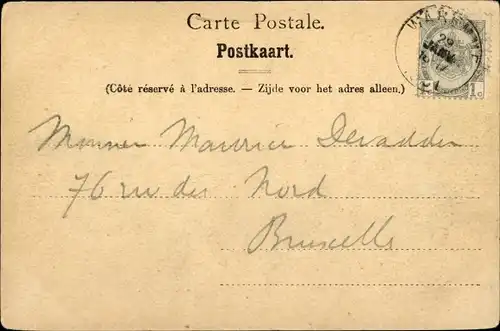 Carte Postale.
Postkaart.
(Côté réservé à l'adresse. — Zijde voor het adres alleen.)
Monsieur Maurice Devadder
76 rue du Nord
Bruxelle
29
JANV
1c